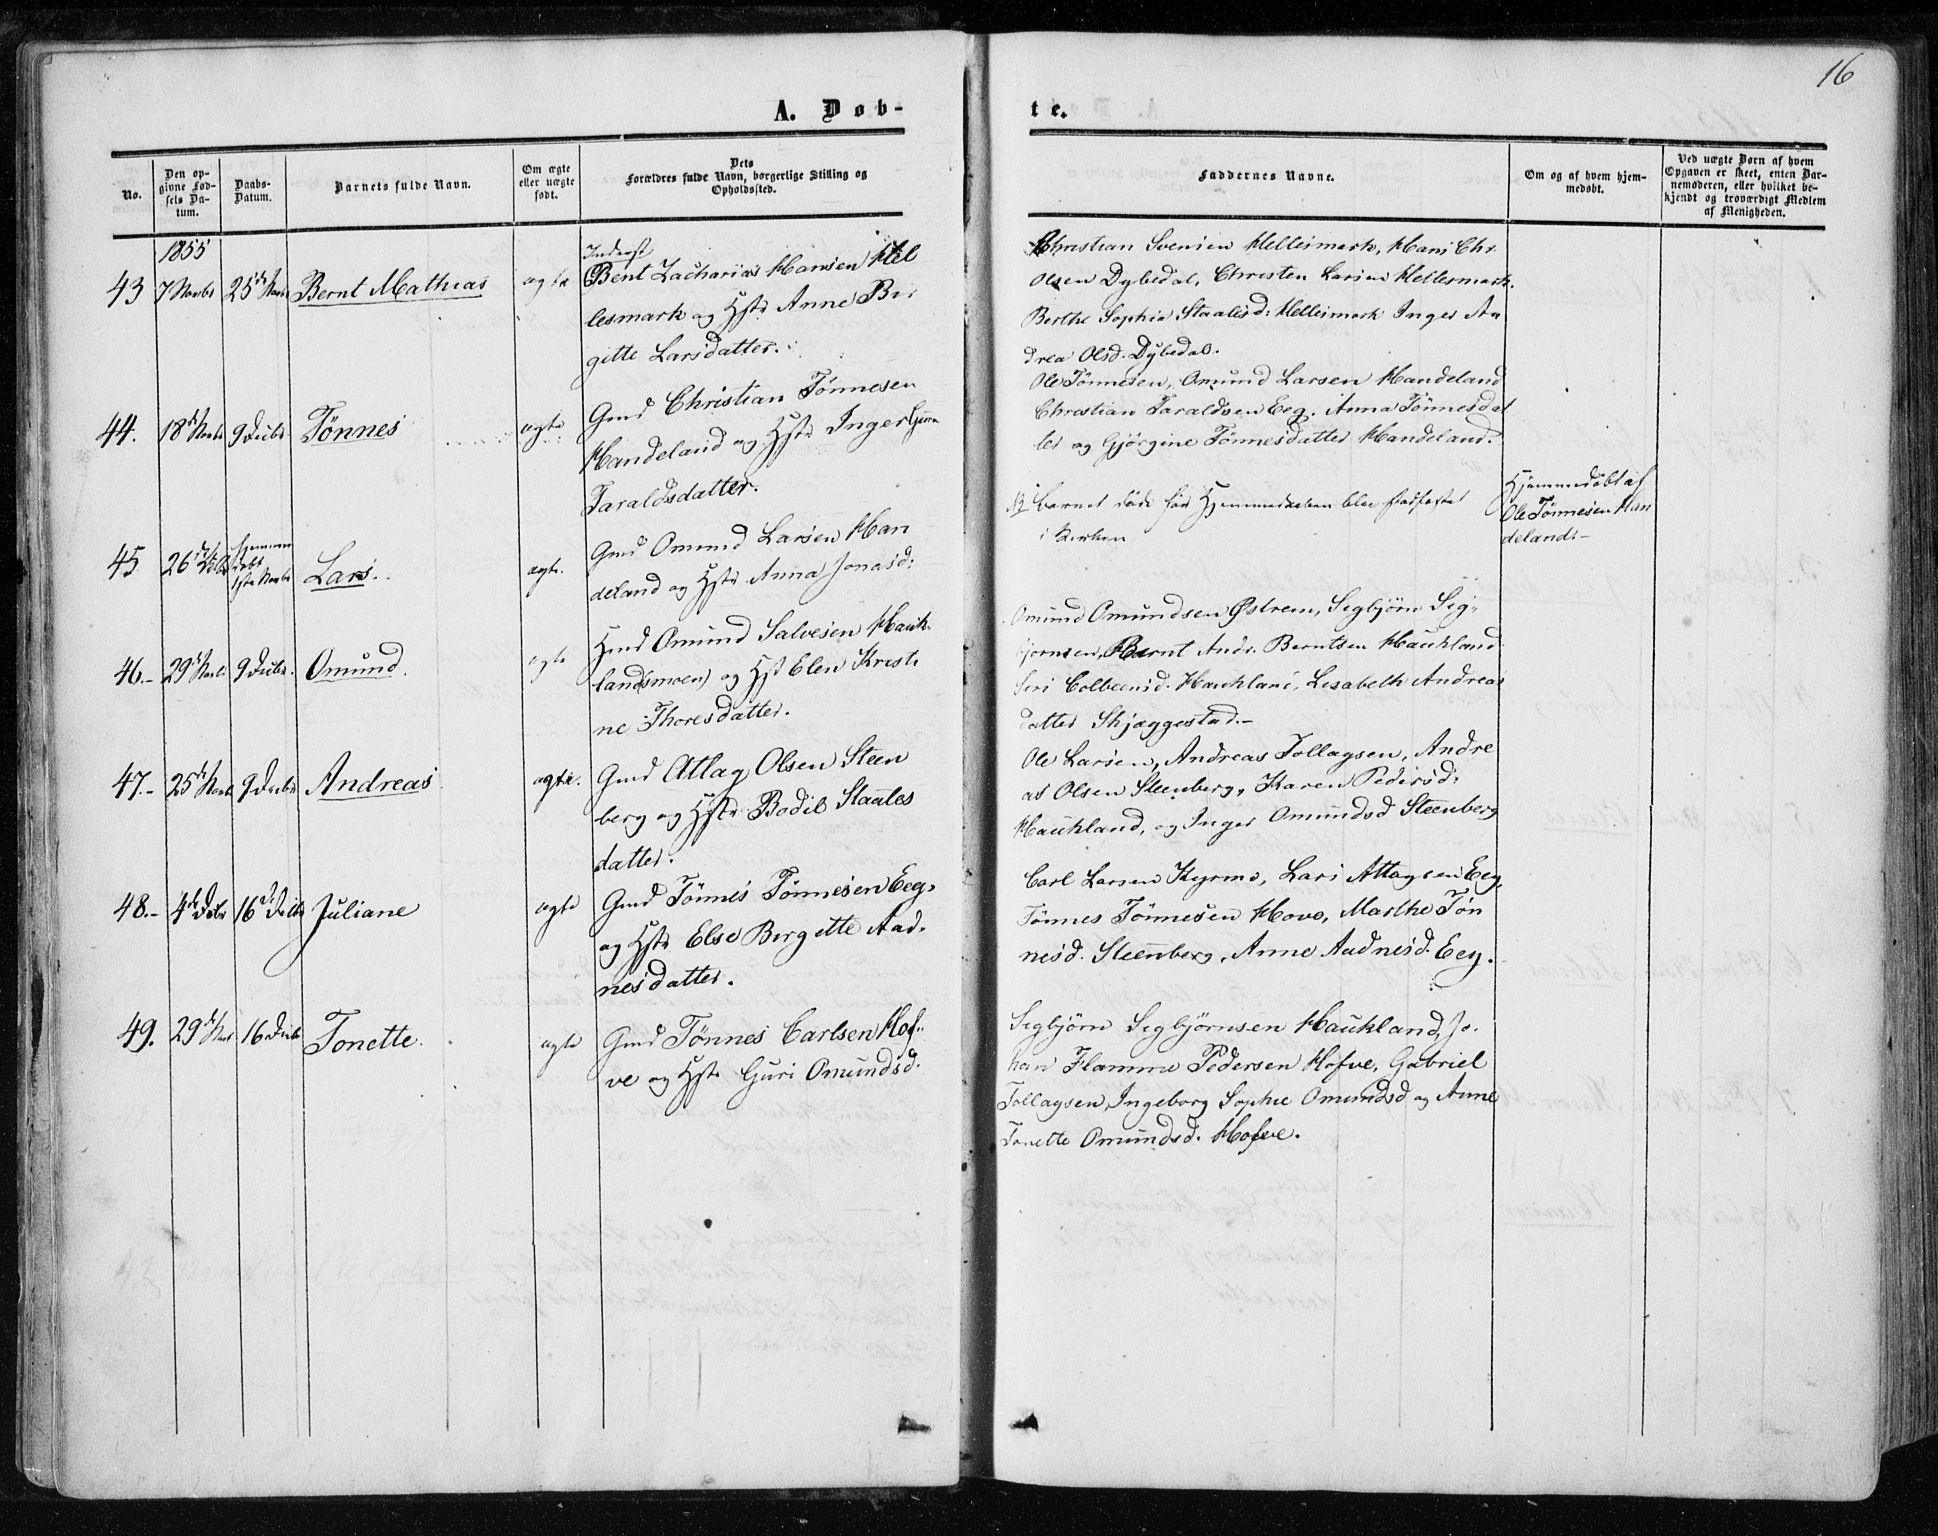 16
A. Døb-
te.
No.
Den op-
givne Fød-
sels Da-
tum.
Daabs-
Datum.
Barnets fulde Navn.
Om ægte
eller uægte
født.
Dets
Forældres fulde Navn, borgerlige Stilling og
Opholdssted.
Faddernes Navne.
Om og af hvem hjem-
medøbt.
Ved uægte Børn af hvem
Opgaven er skeet, enten Bar-
nemoderen, eller hvilket be-
kjendt og troværdigt Medlem
af Menigheden.
1855
43 7 Novbr 25de Novbr Bernt Mathias ægte
Inderst
Bent Zacharias Hansen Hel
lesmark og Hstr Anne Bir
gitte Larsdatter.
Christian Svensen Hellesmark, Hans Chr.
Olsen Dybedal, Christen Larsen Hellesmark.
Berthe Sophia Staalesd: Hellesmark Inger An
drea Olsd. Dybedal.
44. 18de Novbr 9 Decbr Tønnes ægte
Gmd Christian Tønnesen
Handeland og Hstr Inger
Taraldsdatter.
Ole Tønnesen, Omund Larsen Handeland
Christian Taraldsen Eeg. Anna Tønnesdat
ter og Gjørgine Tønnesdatter Handeland.
45 26de Lars. ægte.
Hjemme
døbt
Gmd Omund Larsen Han
deland og Hstr Anna Jonasd:
Barnet døde før Hjemmedaaben blev stadfæstet
i Kirken
Hjemmedøbt af
Ole Tønnesen Han
deland.-
46.- 29de Novbr 9 Decbr. Omund. ægte
Gmd Omund Salvesen Hauk
land(smoen) og Hst Elen Kristi
ne Thoresdatter.
Omund Omundsen Østrem, Segbjørn Seg-
bjørnsen, Bernt Andr. Berntsen Haukland
Siri Colbeensd. Haukland, Lisabeth Andreas
datter Skjæggestad.-
47.- 25de Novbr 9 Decbr Andreas ægte.
Gmd Atlag Olsen Steen
berg og Hstr Bodil Staales
datter.
Ole Larsen, Andreas Tollagsen, Andre
as Olsen Steenberg, Karen Pedersd:
Haukland, og Inger Omundsd Steenberg
48.- 4de Decbr 16de Decbr Juliane ægte
Gmd Tønnes Tønnesen Eeg.
og Hstr Else Bergette Aad.
nesdatter.
Carl Larsen Kyrmo, Lars Attagsen Eeg,
Tønnes Tønnesen Hove, Marthe Tøn
nesd. Steenberg, Anne Aadnesd. Eeg.
49. 29de Novbr 16 Decbr Tonette. ægte
Gmd Tønnes Carlsen Hof-
ve og Hstr Guri Omundsd.
Segbjørn Segbjørnsen Haukland, Jo.
han Flamme Pedersen Hofve, Gabriel
Tollagsen, Ingeborg Sophie Omundsd og Anne
Tonette Omundsd. Hofve.